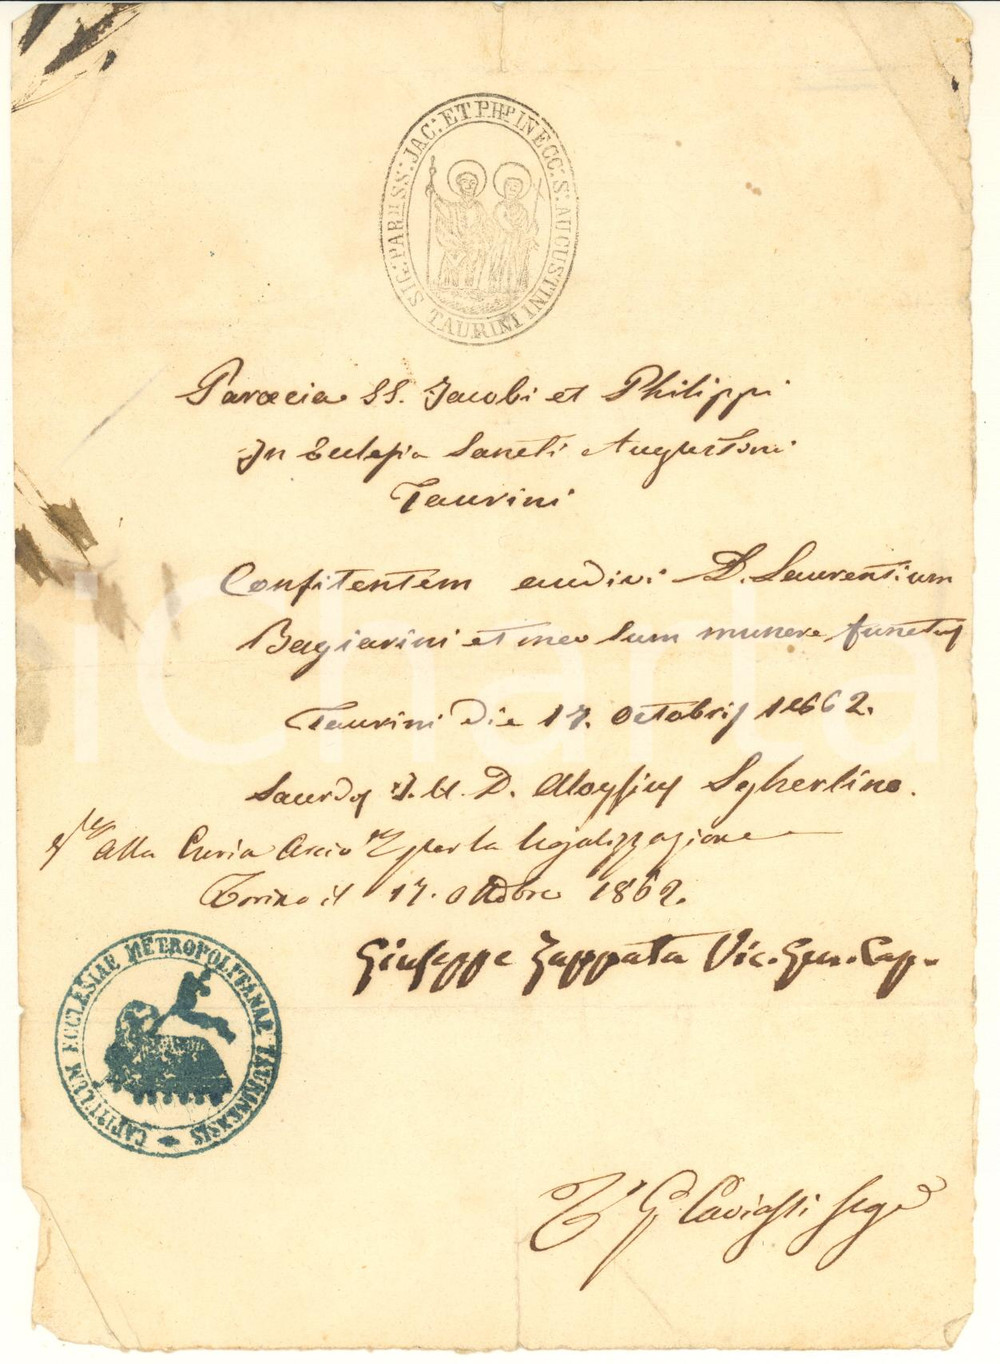 SIG: PAR: SS: JAC: ET PHP IN ECC: S: AUGUSTINI
TAURINI
Paroecia SS. Jacobi et Philippi
In Eclesia Sancti Augustini
Taurini
Confitentem audivi D. Laurentium
Bagiarini et meo sum munere functus
Taurini die 17. Octobris 1862.
D. Aloysius
alla Curia per la legalizzazione
Torino il 17. Ottobre 1862.
Giuseppe Zappata Vic. Gen. Cap.
CAPITULUM ECCLESIAE METROPOLITANAE TAURINENSIS
iCharta